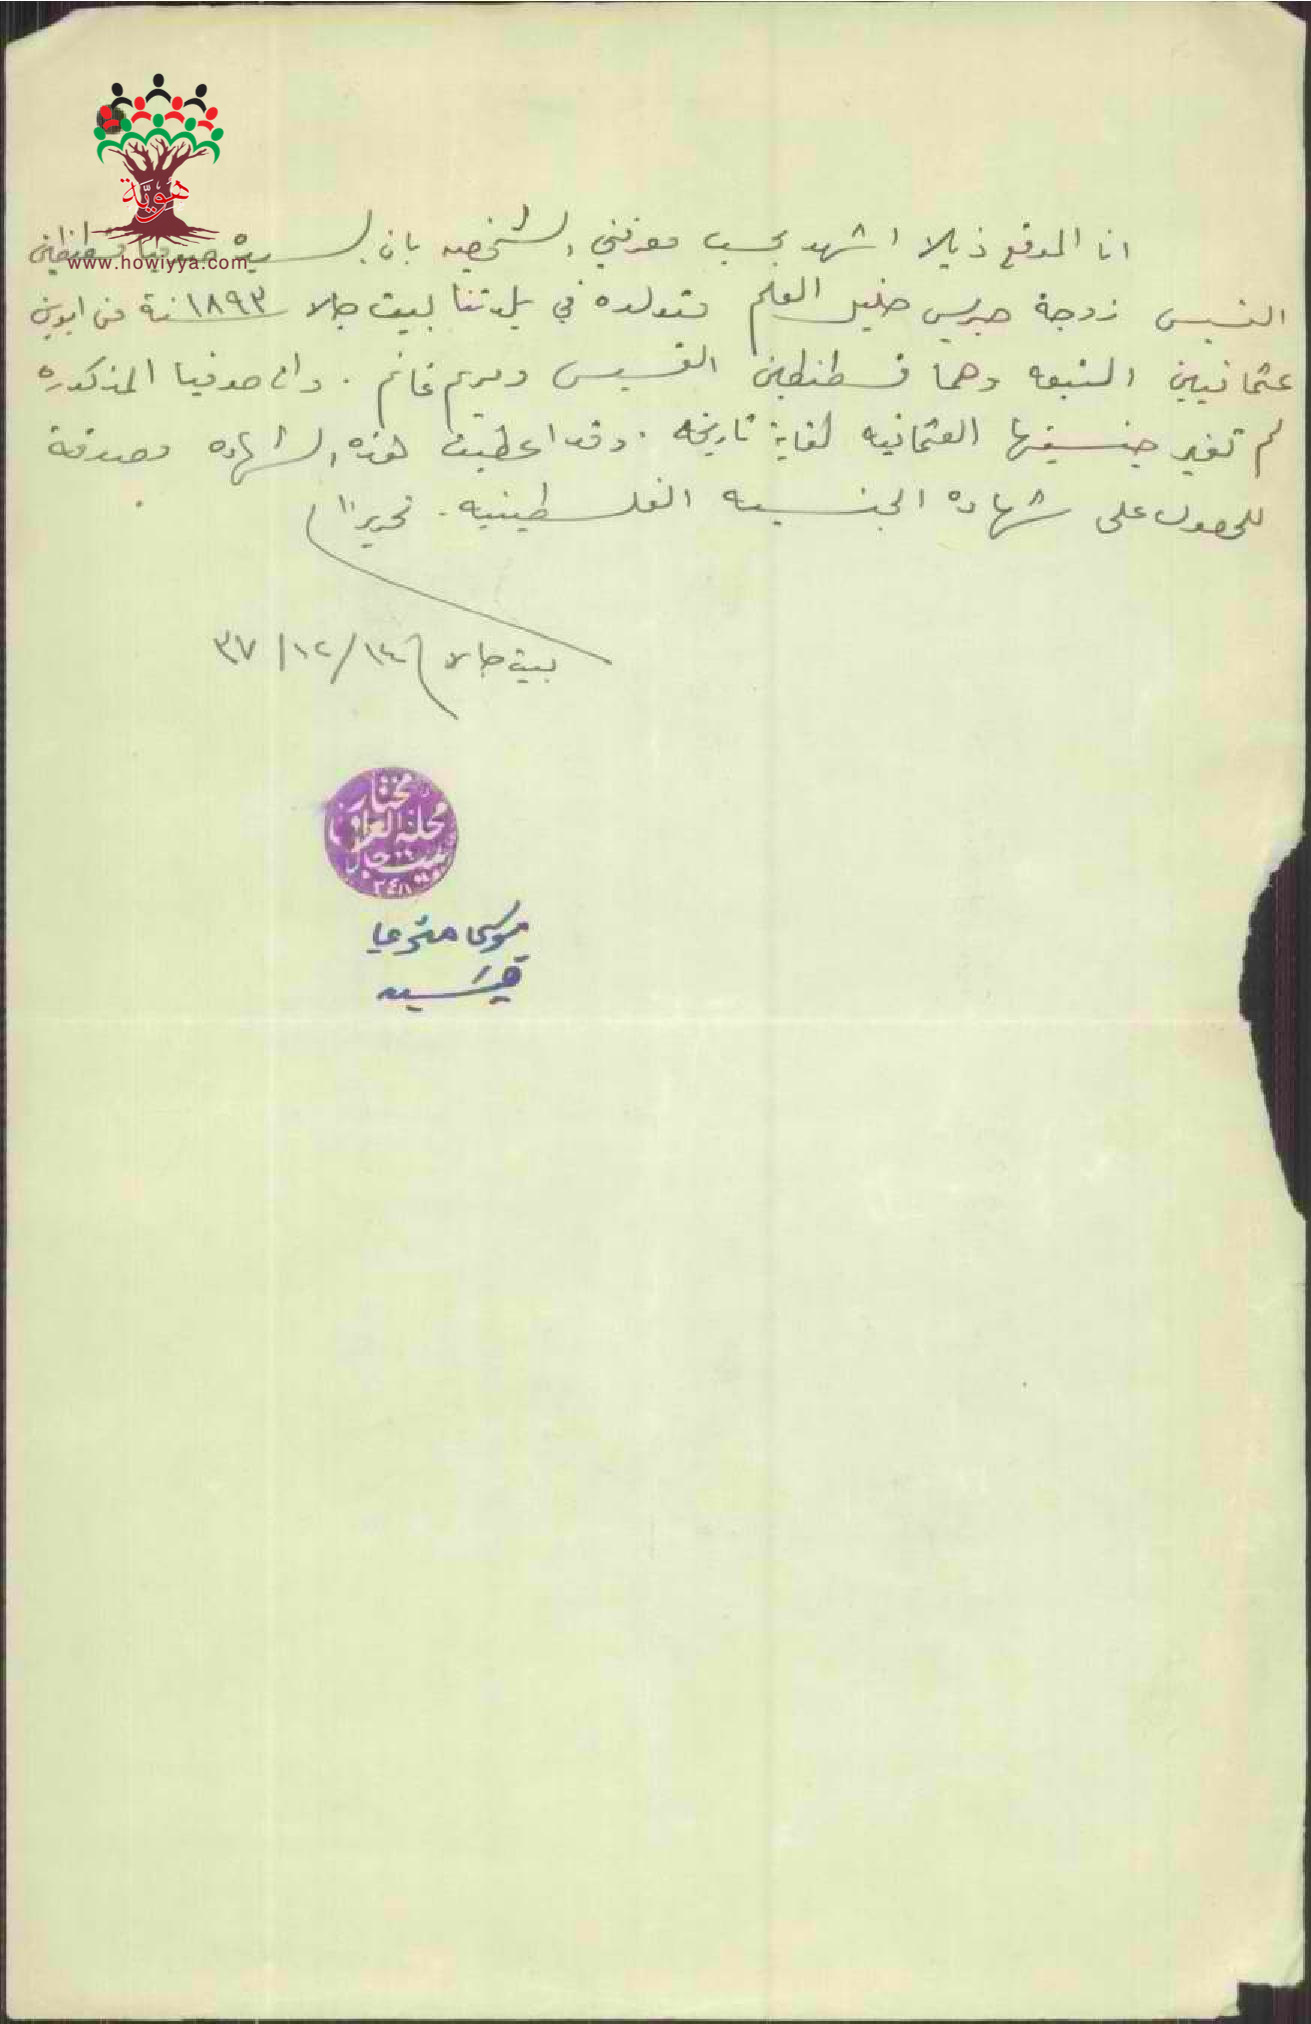 هُويَّة
www.howiyya.com
انا الموقع ذيلا اشهد بحسب معرفتي الشخصيه بان السيده صوفيا قسطنطين
القسيس زوجة جريس خليل العلم متولده في بلدتنا بيت جالا سنة ١٨٩٣ من ابوين
عثمانيين التبعه وهما قسطنطين القسيس ومريم غانم . وان صوفيا المذكوره
لم تغير جنسيتها العثمانيه لغاية تاريخه . وقد اعطيت هذه الشهاده مصدقة
للحصول على شهادة الجنسيه الفلسطينيه . تحريرا
بيت جالا ١٤/١٢/٣٧
مختار
محلة
بيت جالا
موسى